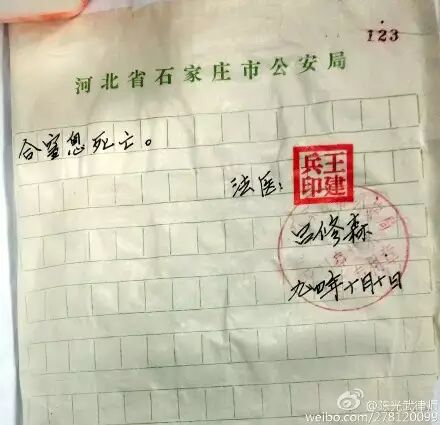 123
河北省石家庄市公安局
合窒息死亡。
法医:
王建
兵印
吕修森
九四年十月十日
@陈光武律师
weibo.com/278120099